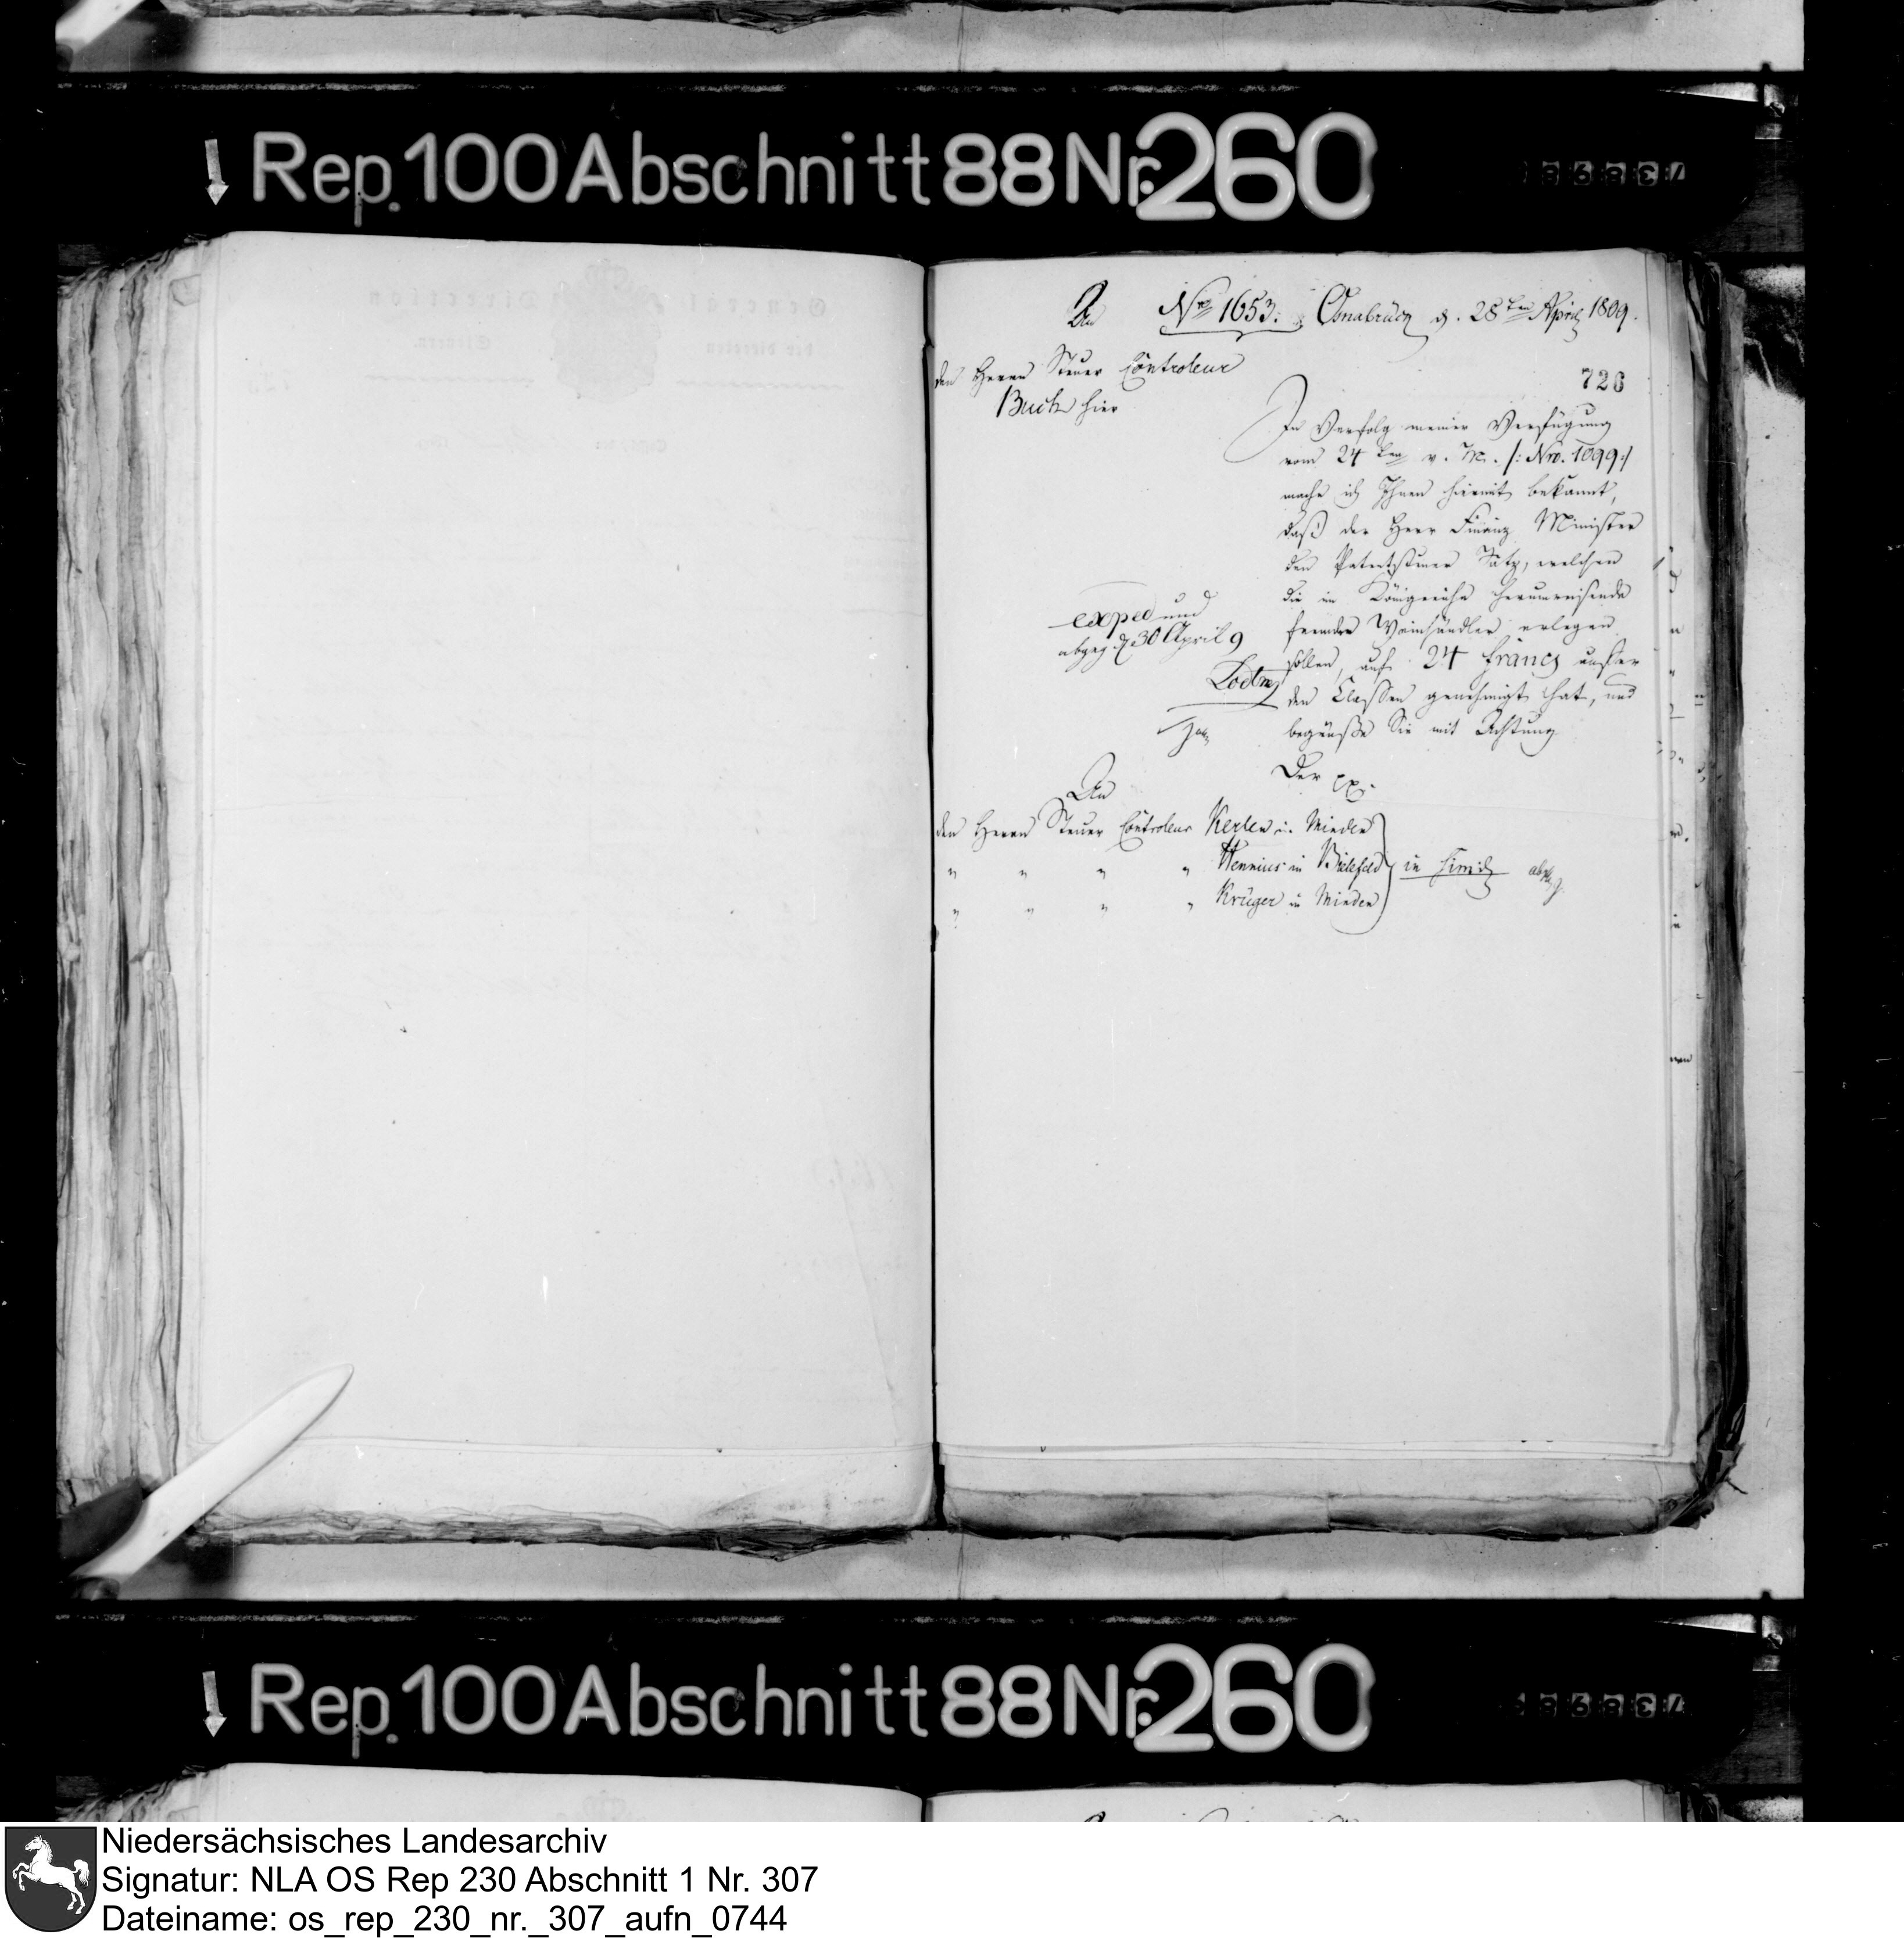 Rep. 100 Abschnitt 88 Nr. 260
An
Nro 1653. Osnabrück d. 28ten April 1809.
den Herrn Steuer Controleur
Buch hier
726
In Verfolg meiner Verfügung
vom 24ten v. M. /: Nro. 1099 :/
mache ich Ihnen hiermit bekannt,
daß der Herr Finanz Minister
den Patentsteuer Satz, welchen
die im Königreiche herumreisende
fremde Weinhändler erlegen
sollen, auf 24 francs außer
den Classen genehmigt hat, und
begrüße Sie mit Achtung
Der
exped und
abgeg d 30 April 9
An
den Herrn Steuer Controleur Kerlen in Minden
" " " " Hennius in Bielefeld in simili
" " " " Krüger in Minden
Rep. 100 Abschnitt 88 Nr. 260
Niedersächsisches Landesarchiv
Signatur: NLA OS Rep 230 Abschnitt 1 Nr. 307
Dateiname: os_rep_230_nr._307_aufn_0744